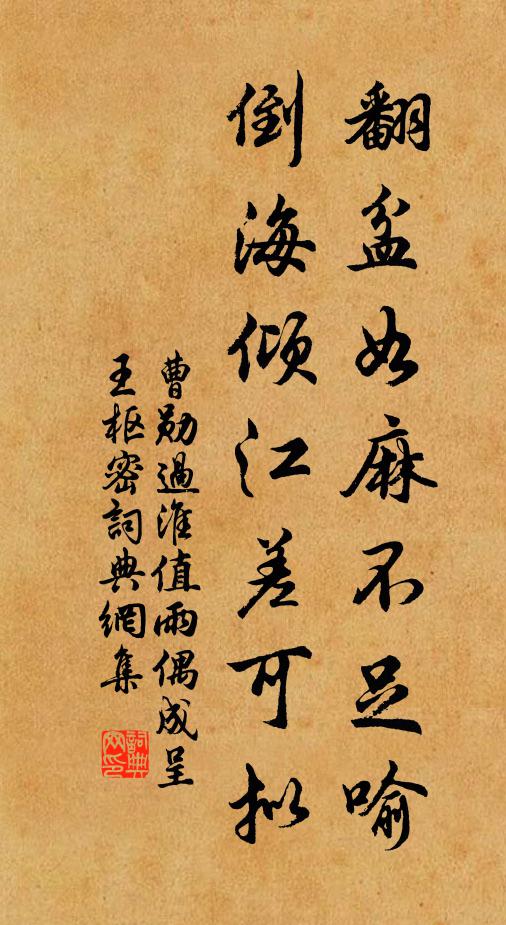 翻盆如麻不足喻
倒海倾江差可拟
曹勋過淮值雨偶成呈
王枢密詞典網集
詞典
网印